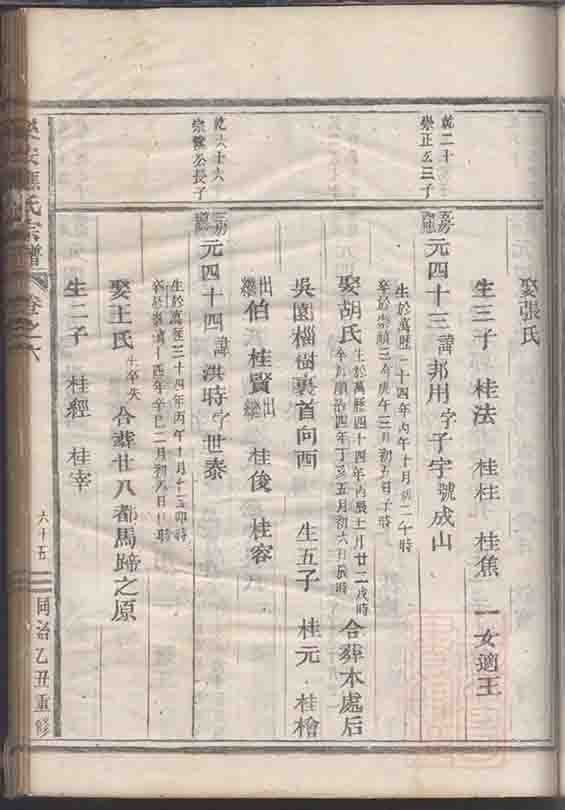 娶張氏
生三子 桂法 桂柱 桂焦 一女適王
乾二十
崇正公三子
元四十三諱邦用字子宇號成山
生於萬歷二十四年丙午十月初二午時
卒於崇禎三年庚午三月初五日子時
娶胡氏生於萬歷四十四年丙辰七月廿二戌時 卒於順治四年丁亥五月初六日辰時 合葬本處后
吳園橊樹裏首向酉 生五子 桂元 桂檜
出繼伯 桂賢出繼 桂俊 桂容
乾六十六
公長子
元四十四諱洪時字世泰
生於萬歷三十四年丙午十月十五卯時
卒於崇禎十四年辛巳二月初八日時
娶王氏生卒失 合葬廿八都馬蹄之原
生二子 桂經 桂宰
氏宗譜 卷之八 六十五 同治乙丑重修